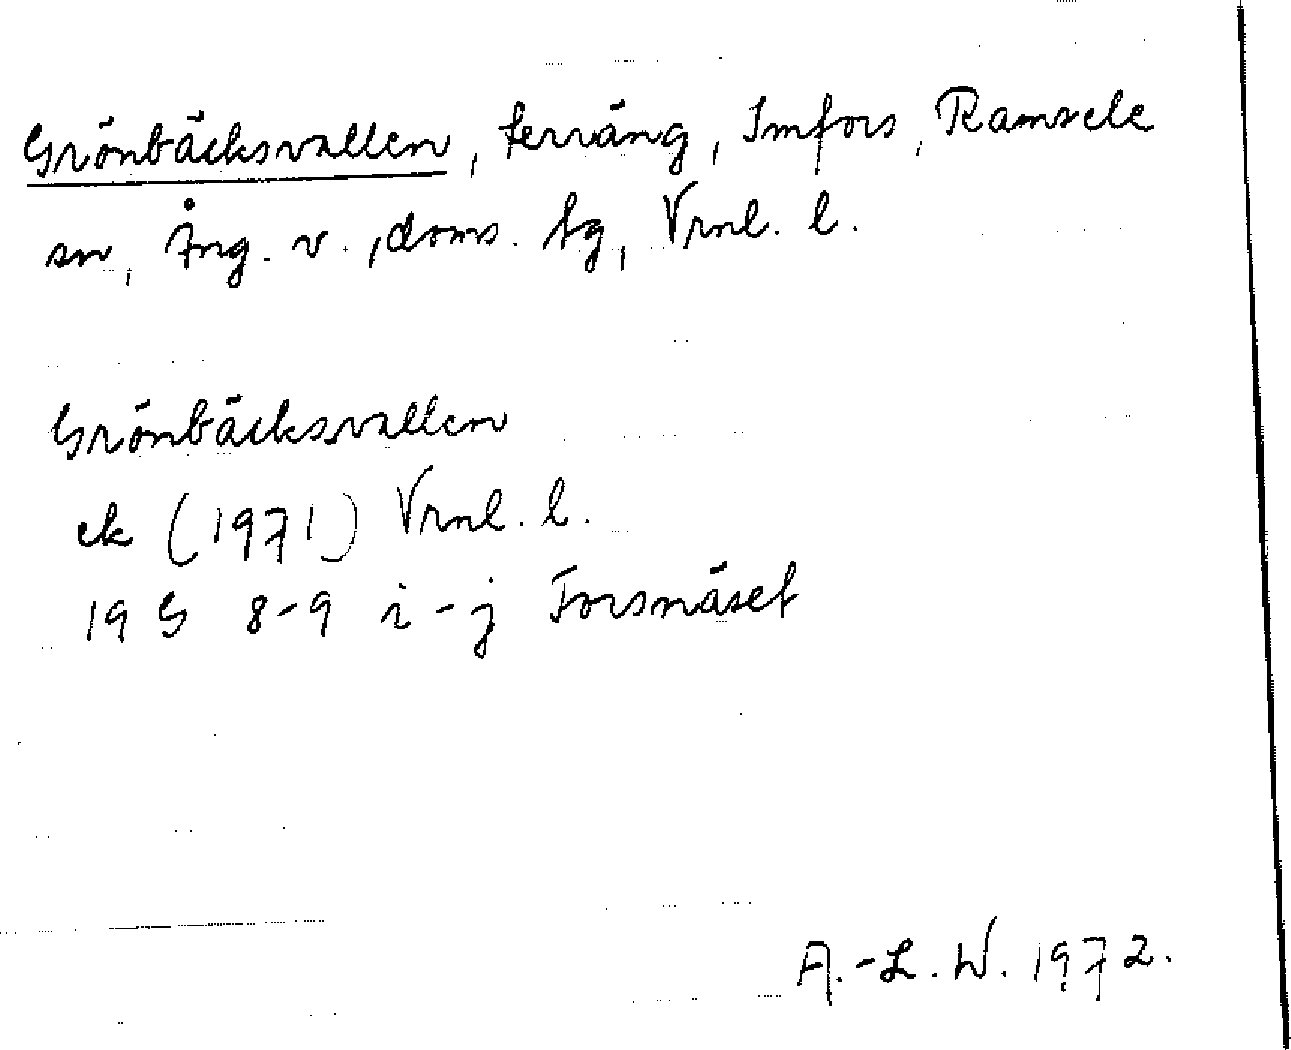 Grönbäcksvallen, terräng, Imfors, Ramsele
sn, Ång. v., doms. tg, Vrnl. l.
Grönbäcksvallen
ek (1971) Vrnl. l.
19 G 8-9 i-j Forsnäset
A.-L. W. 1972.